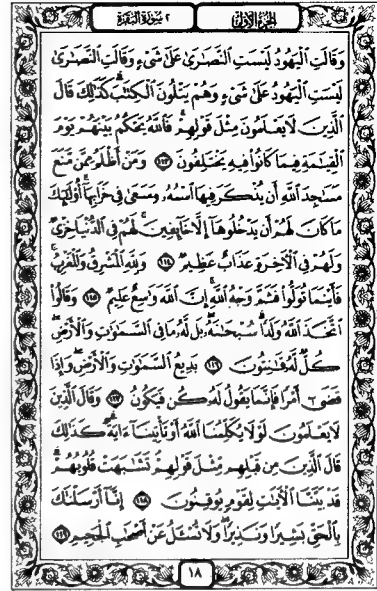 الجزء الأول ٢ سورة البقرة
وَقَالَتِ ٱلْيَهُودُ لَيْسَتِ ٱلنَّصَٰرَىٰ عَلَىٰ شَىْءٍ وَقَالَتِ ٱلنَّصَٰرَىٰ
لَيْسَتِ ٱلْيَهُودُ عَلَىٰ شَىْءٍ وَهُمْ يَتْلُونَ ٱلْكِتَٰبَ كَذَٰلِكَ قَالَ
ٱلَّذِينَ لَا يَعْلَمُونَ مِثْلَ قَوْلِهِمْ فَٱللَّهُ يَحْكُمُ بَيْنَهُمْ يَوْمَ
ٱلْقِيَٰمَةِ فِيمَا كَانُوا۟ فِيهِ يَخْتَلِفُونَ ١١٣ وَمَنْ أَظْلَمُ مِمَّن مَّنَعَ
مَسَٰجِدَ ٱللَّهِ أَن يُذْكَرَ فِيهَا ٱسْمُهُۥ وَسَعَىٰ فِى خَرَابِهَآ أُو۟لَٰٓئِكَ
مَا كَانَ لَهُمْ أَن يَدْخُلُوهَآ إِلَّا خَآئِفِينَ لَهُمْ فِى ٱلدُّنْيَا خِزْىٌ
وَلَهُمْ فِى ٱلْءَاخِرَةِ عَذَابٌ عَظِيمٌ ١١٤ وَلِلَّهِ ٱلْمَشْرِقُ وَٱلْمَغْرِبُ
فَأَيْنَمَا تُوَلُّوا۟ فَثَمَّ وَجْهُ ٱللَّهِ إِنَّ ٱللَّهَ وَٰسِعٌ عَلِيمٌ ١١٥ وَقَالُوا۟
ٱتَّخَذَ ٱللَّهُ وَلَدًا سُبْحَٰنَهُۥ بَل لَّهُۥ مَا فِى ٱلسَّمَٰوَٰتِ وَٱلْأَرْضِ
كُلٌّ لَّهُۥ قَٰنِتُونَ ١١٦ بَدِيعُ ٱلسَّمَٰوَٰتِ وَٱلْأَرْضِ وَإِذَا
قَضَىٰٓ أَمْرًا فَإِنَّمَا يَقُولُ لَهُۥ كُن فَيَكُونُ ١١٧ وَقَالَ ٱلَّذِينَ
لَا يَعْلَمُونَ لَوْلَا يُكَلِّمُنَا ٱللَّهُ أَوْ تَأْتِينَآ ءَايَةٌ كَذَٰلِكَ
قَالَ ٱلَّذِينَ مِن قَبْلِهِم مِّثْلَ قَوْلِهِمْ تَشَٰبَهَتْ قُلُوبُهُمْ
قَدْ بَيَّنَّا ٱلْءَايَٰتِ لِقَوْمٍ يُوقِنُونَ ١١٨ إِنَّآ أَرْسَلْنَٰكَ
بِٱلْحَقِّ بَشِيرًا وَنَذِيرًا وَلَا تُسْـَٔلُ عَنْ أَصْحَٰبِ ٱلْجَحِيمِ ١١٩
١٨